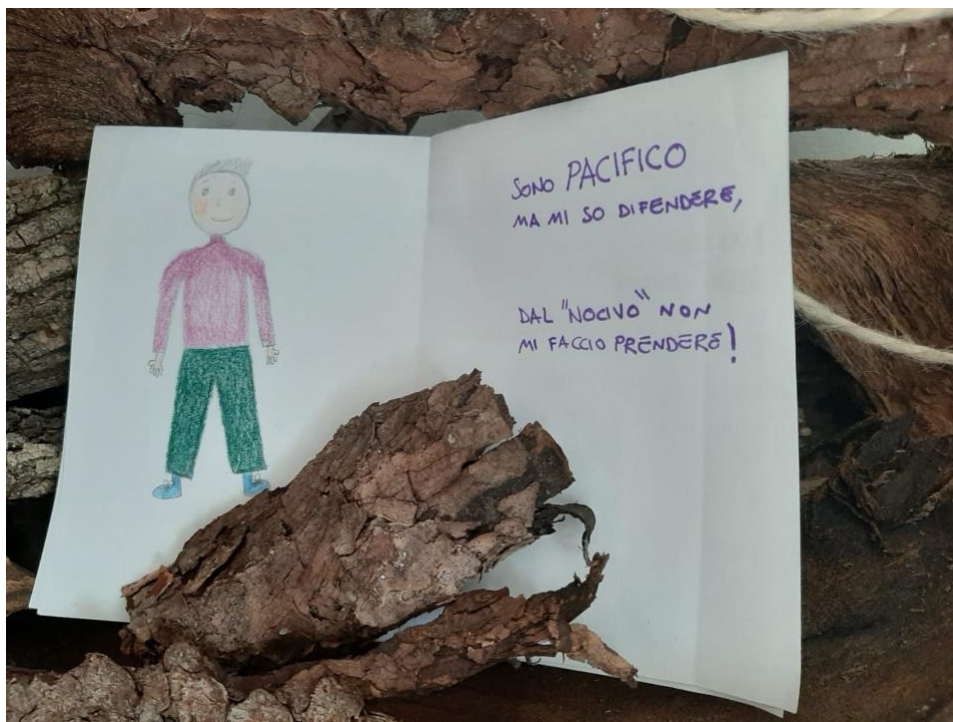 SONO PACIFICO
MA MI SO DIFENDERE,
DAL "NOCIVO" NON
MI FACCIO PRENDERE!